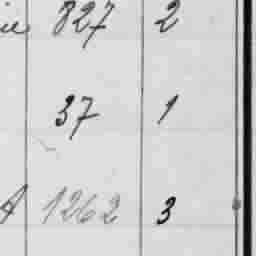 827 2
37 1
1262 3